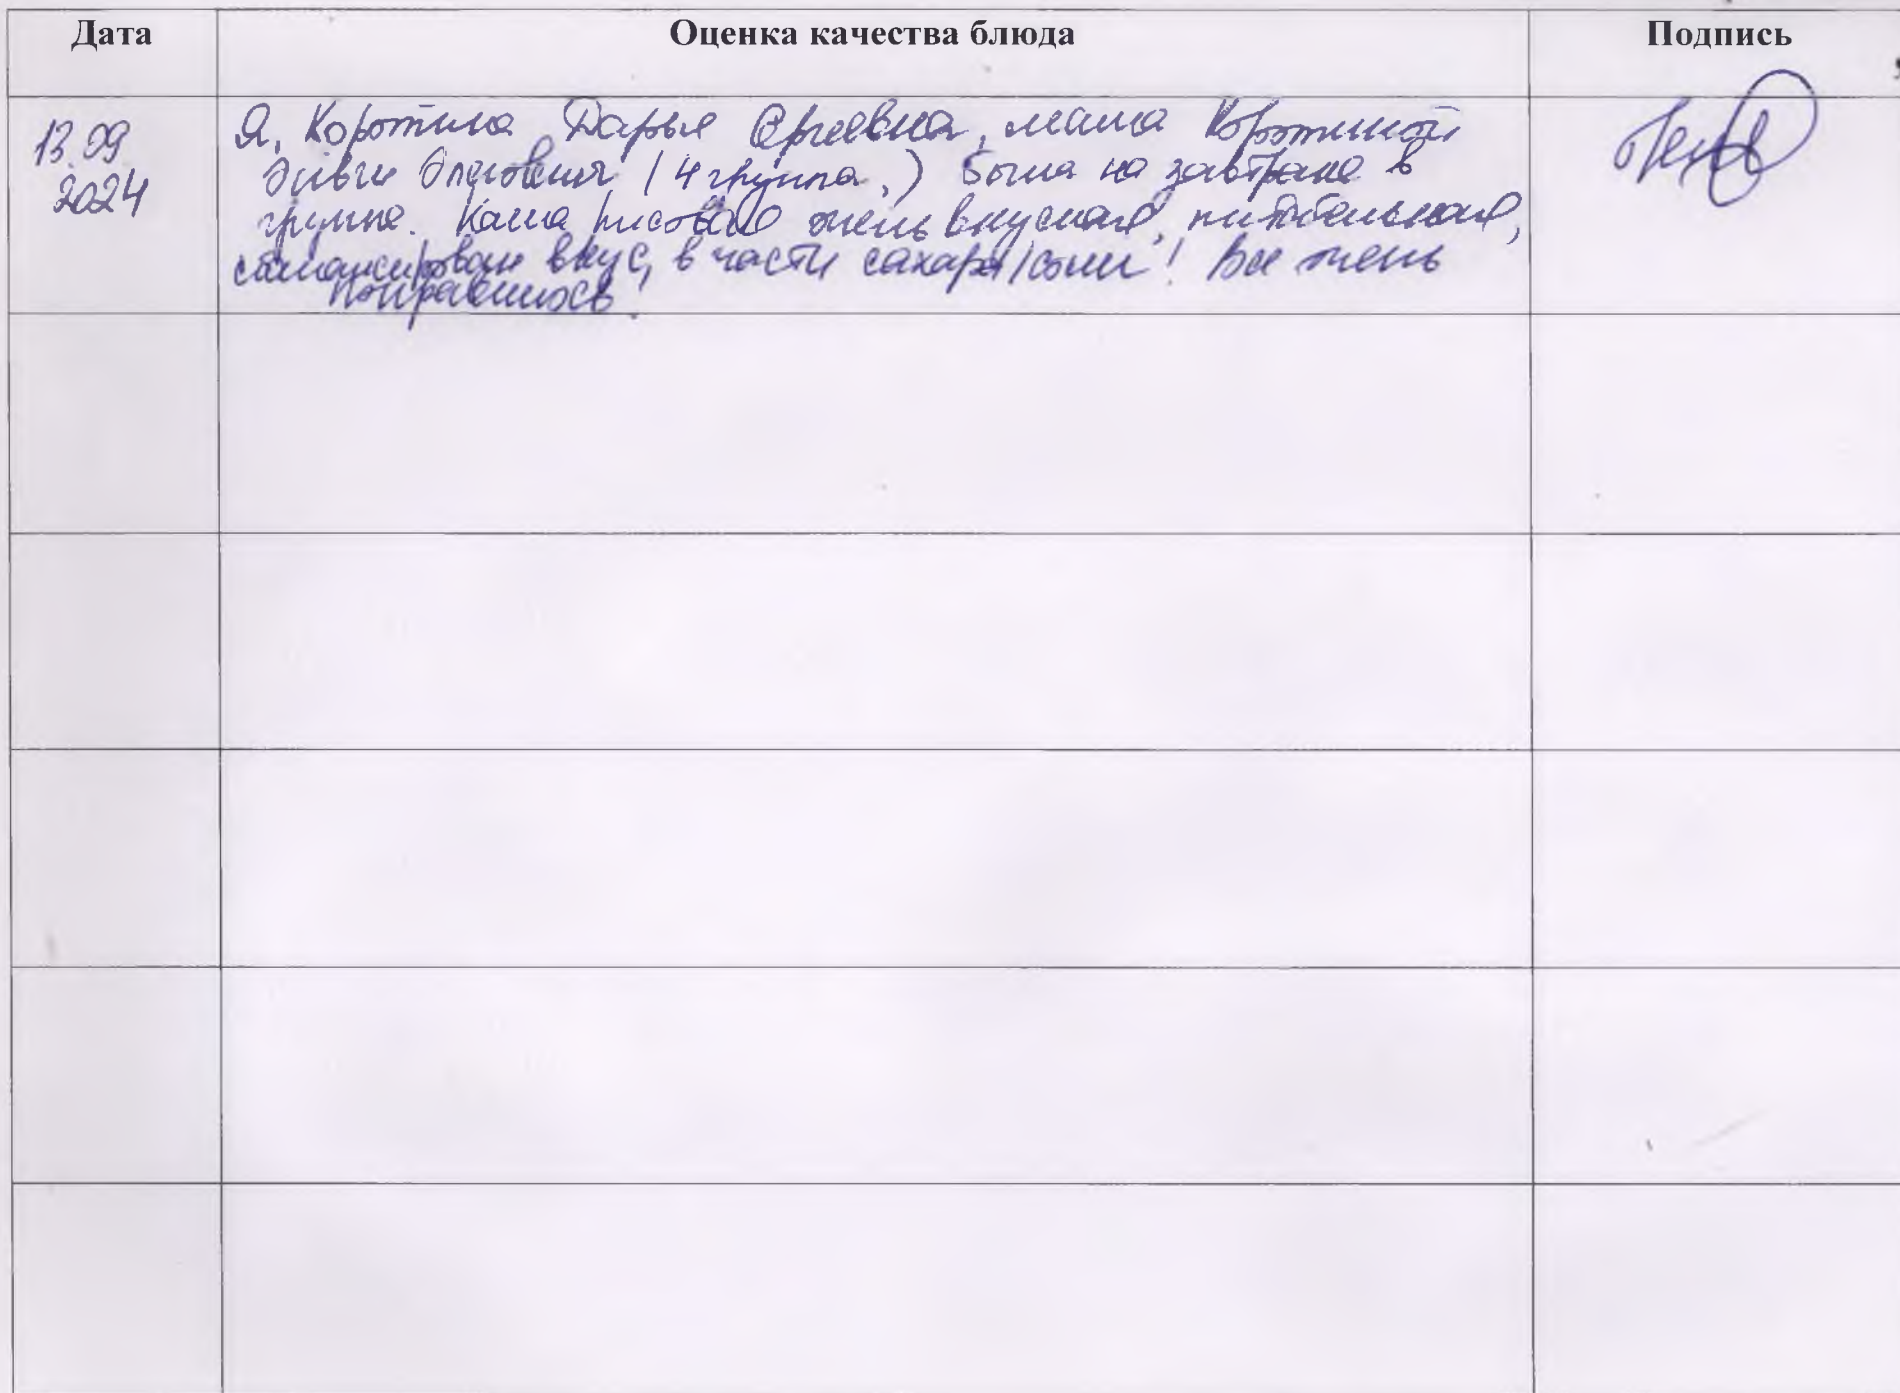 Дата Оценка качества блюда Подпись
13.09
2024
Я, Коротина Дарья Сергеевна, мама Коротиной
(4 группа,) была на завтраке в
группе. Каша рисовая очень вкусная, питательная,
сбалансирован вкус, в части сахара/соли! Все очень
понравилось.